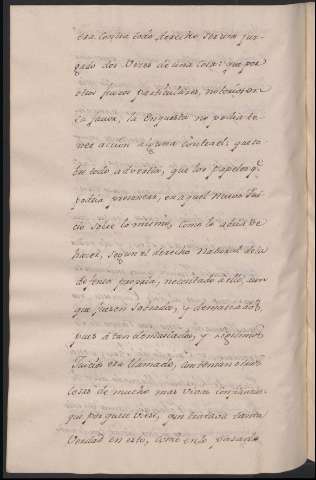 era contra todo derecho ser un juz-
gado dos veces de una cosa: que por
otros fueros particulares, notorios en
su favor, la Pesquesta no podia te-
ner accion alguna contra el: que so-
bre todo advertia, que los papeles q.
podria presentar, en aquel nuevo Jui-
cio sobre lo mismo, como lo avia de
hacer, segun el derecho natural de la
defensa propria, necesitado a ello, aun
que fuesen Sabrados, y demasiados,
pues á tan dom y legitimo
Juicio era llamado, contenian otras
cosas de mucho mas viva
que porque viese, que tratava tanta
Verdad en esto, como en lo pasado